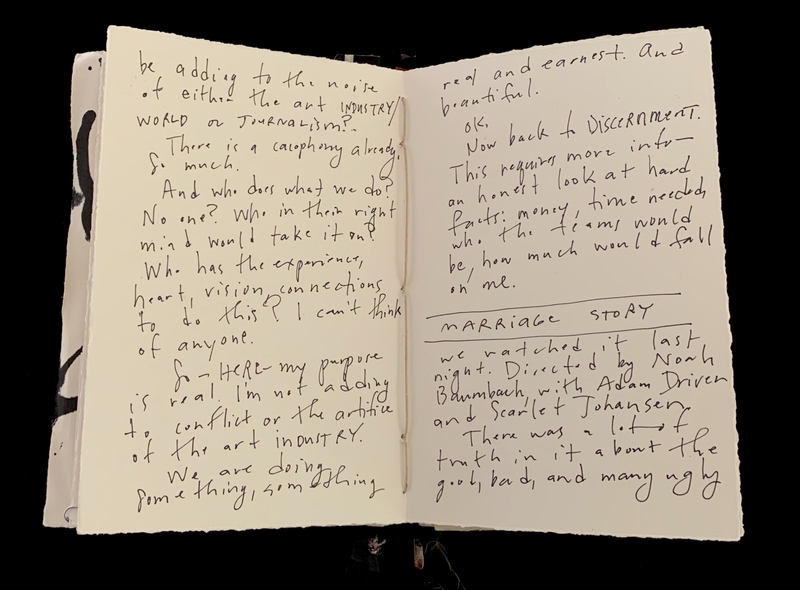 be adding to the noise
of either the art INDUSTRY/
WORLD or JOURNALISM?
There is a cacophony already.
So much.
And who does what we do?
No one? Who in their right
mind would take it on?
Who has the experience,
heart, vision, connections
to do this? I can't think
of anyone.
So - HERE - my purpose
is real. I'm not adding
to conflict or the artifice
of the art INDUSTRY.
We are doing
something, something
real and earnest. And
beautiful.
OK.
Now back to DISCERNMENT.
This requires more info -
an honest look at hard
facts: money, time needed,
who the teams would
be, how much would fall
on me.
MARRIAGE STORY
We watched it last
night. Directed by Noah
Baumbach, with Adam Driver
and Scarlet Johansen
There was a lot of
truth in it about the
good, bad, and many ugly